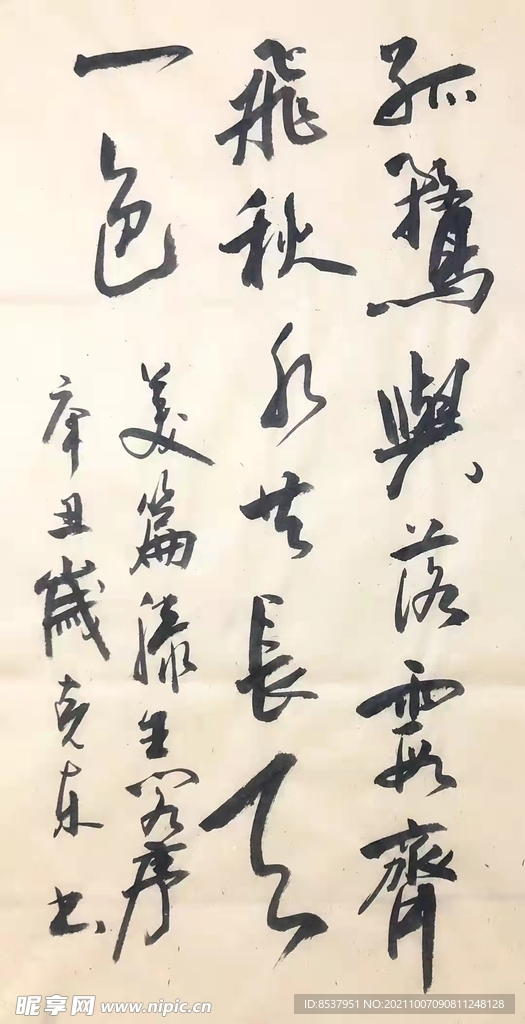 孤鶩與落霞齊
飛秋水共長天
一色
美篇滕王阁序
辛丑歲克东书
昵享网 www.nipic.cn
ID:8537951 NO:20211007090811248128